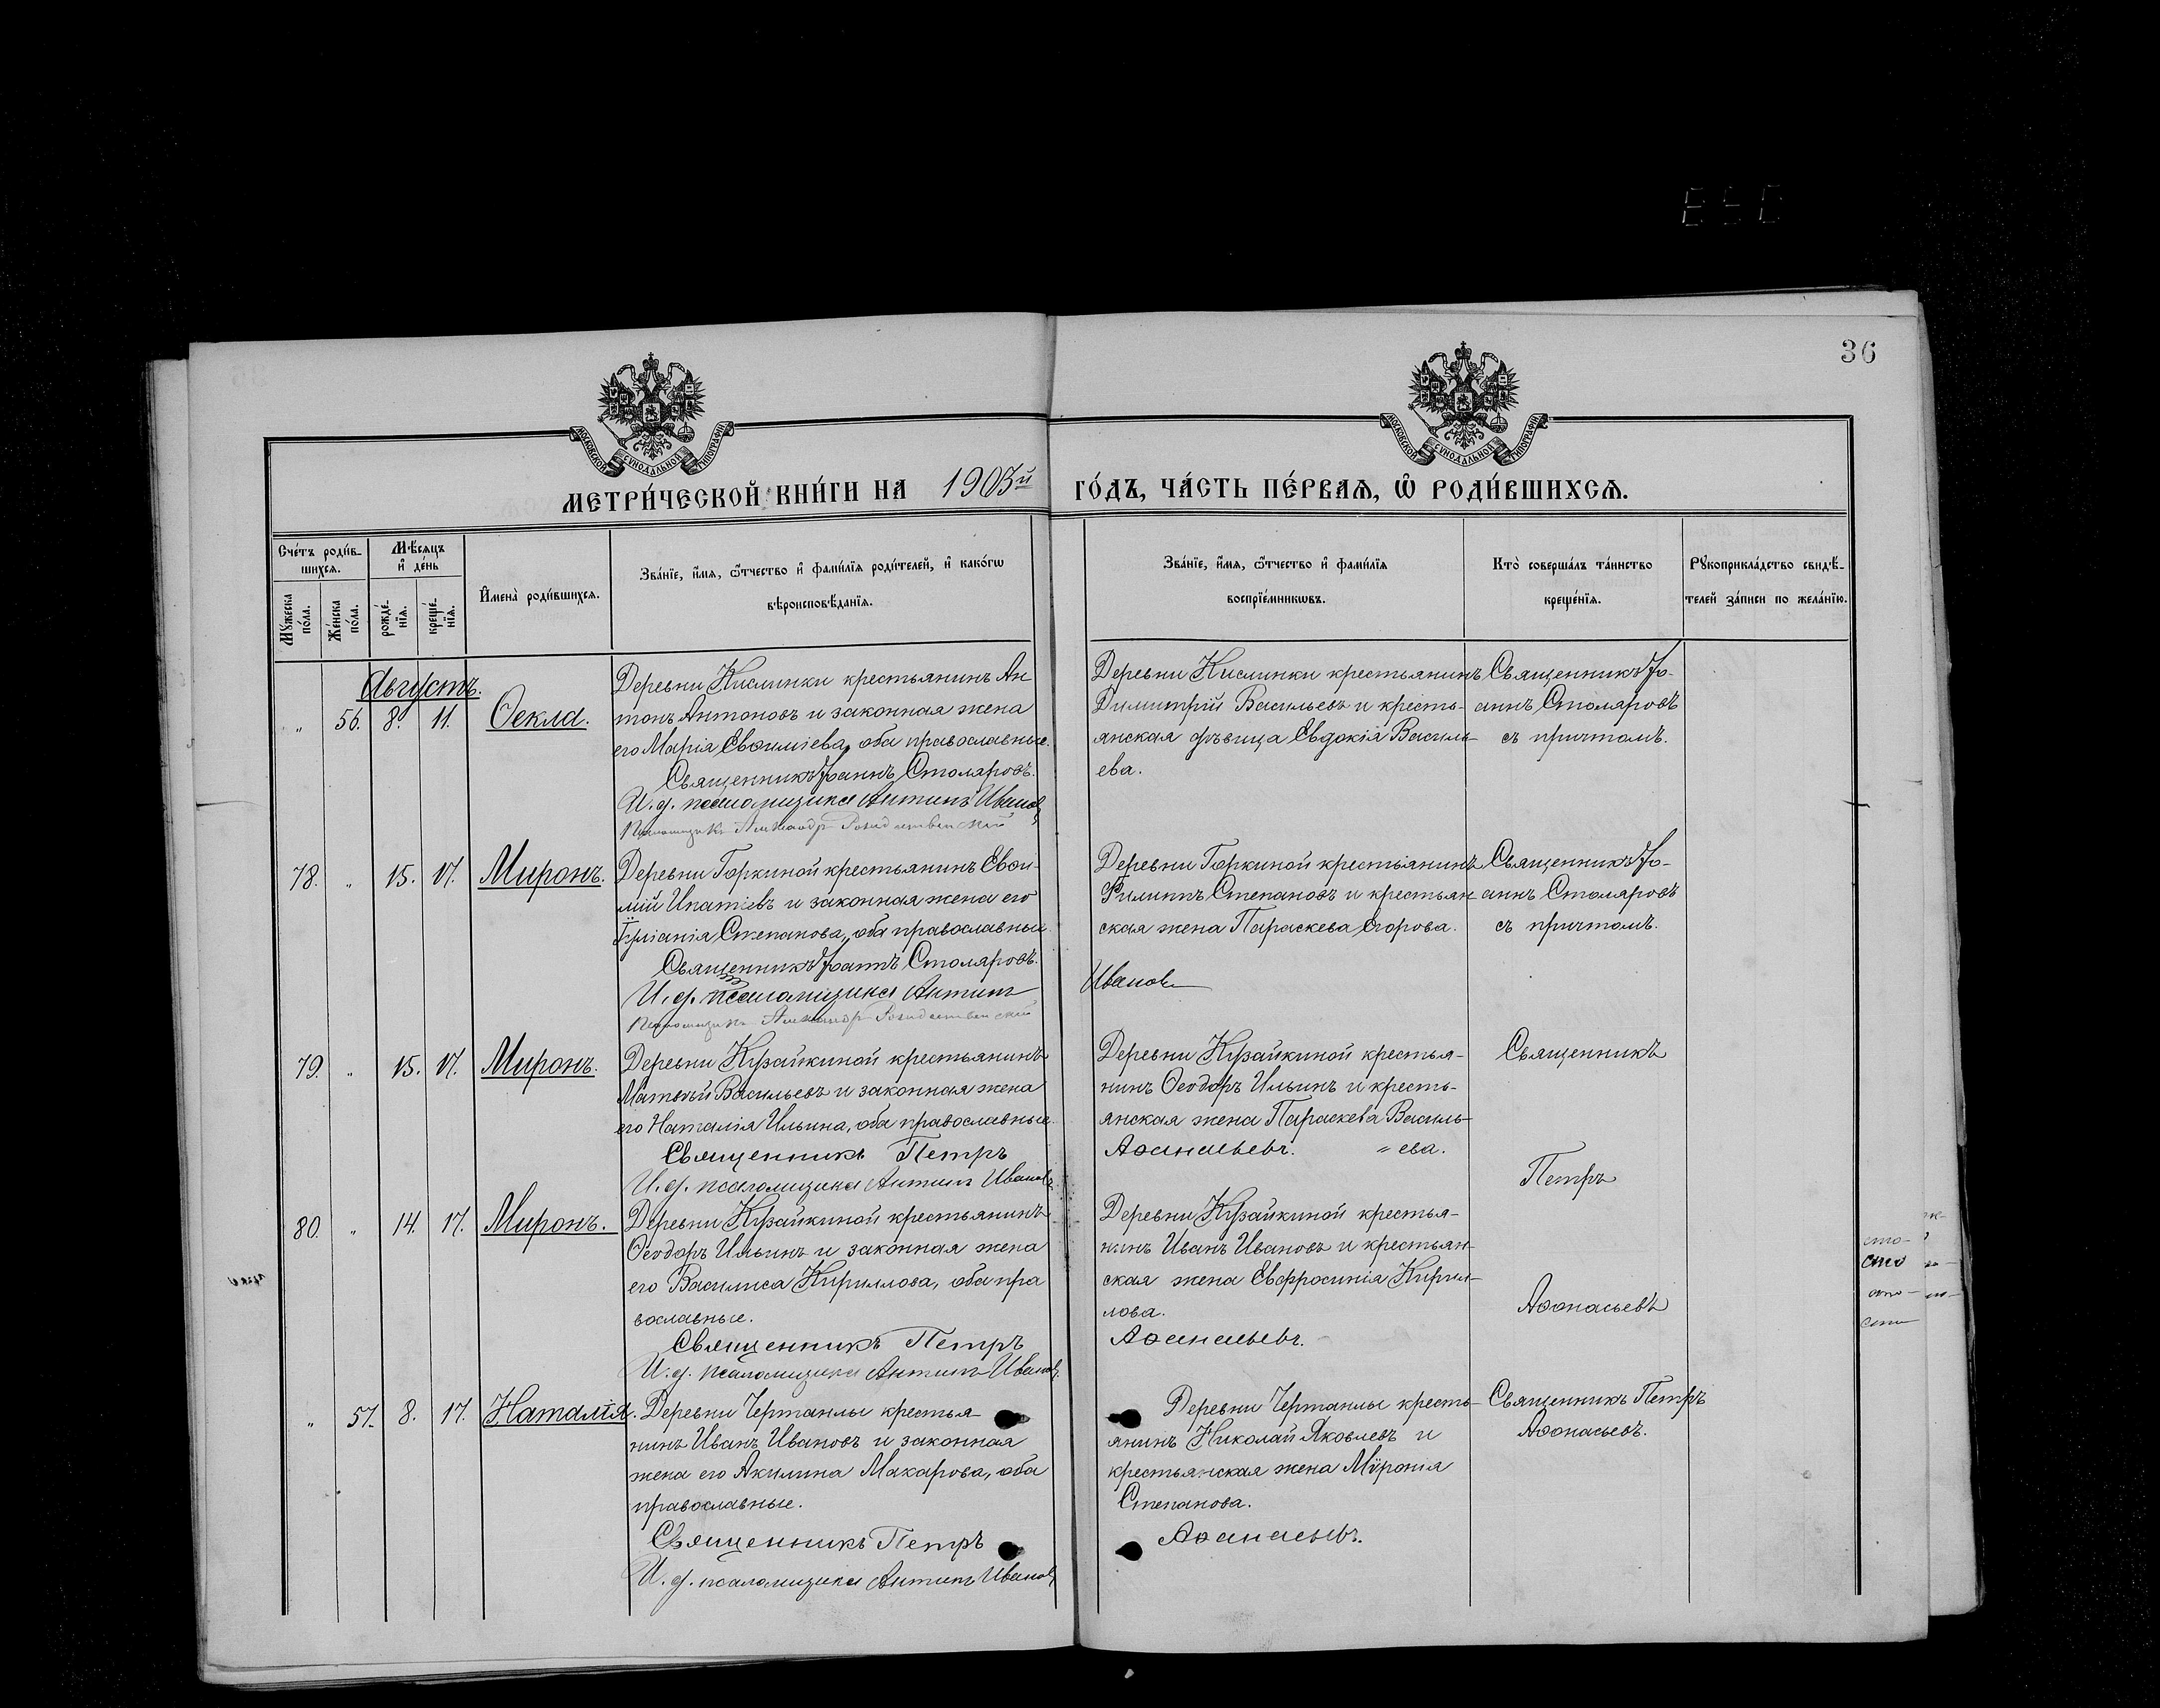 36
МОСКОВСКОЙ СѴНОДАЛЬНОЙ ТИПОГРАФІИ
МОСКОВСКОЙ СѴНОДАЛЬНОЙ ТИПОГРАФІИ
МЕТРИ́ЧЕСКОЙ КНИ́ГИ НА 1903й ГО́ДЪ, ЧА́СТЬ ПЕ́РВАѦ, Ѽ РОДИ́ВШИХСѦ.
Сче́тъ роди́в-
шихсѧ.
Мꙋжеска
по́ла.
Же́нска
по́ла.
Мѣ́сѧцъ
и҆ де́нь
рожде́-
нїѧ.
креще́-
нїѧ.
И҆мена̀ роди́вшихсѧ.
Зва́нїе, и҆́мѧ, ѻ҆́тчество и҆ фами́лїѧ роди́телей, и҆ како́гѡ
вѣроисповѣ́данїѧ.
Зва́нїе, и҆́мѧ, ѻ҆́тчество и҆ фами́лїѧ
воспрїе́мникѡвъ.
Кто̀ соверша́лъ та́инство
креще́нїѧ.
Рꙋкоприкла́дство свидѣ́-
телей за́писи по жела́нїю.
Августъ.
" 56. 8. 11. Ѳекла.
Деревни Кислинки крестьянинъ Ан
тонъ Антоновъ и законная жена
его Марія Евѳиміева, оба православные.
Священникъ Іоаннъ Столяровъ.
И. д. псаломщика Антипъ Иванов
Псаломщикъ Александр Рождественский
Деревни Кислинки крестьянинъ
Димитрій Васильевъ и кресть-
янская дѣвица Евдокія Василь-
ева.
Священникъ Іо-
аннъ Столяровъ
съ причтомъ.
78. " 15. 17. Миронъ.
Деревни Горкиной крестьянинъ Евѳи-
мій Ипатіевъ и законная жена его
Степанова, оба православные.
Священникъ Іоаннъ Столяровъ.
И. д. псаломщика Антип
Псаломщикъ Александр Рождественский
Деревни Горкиной крестьянинъ
Филиппъ Степановъ и крестьян-
ская жена Параскева Егорова.
Иванов
Священникъ Іо-
аннъ Столяровъ
съ причтомъ.
79. " 15. 17. Миронъ.
Деревни Кузайкиной крестьянинъ
Матѳій Васильевъ и законная жена
его Наталія Ильина, оба православные.
Священникъ Петръ
И. д. псаломщика Антип Иванов
Деревни Кузайкиной крестья-
нинъ Ѳеодоръ Ильинъ и кресть-
янская жена Параскева Василь-
Аѳанасьевъ. " ева.
Священникъ
Петръ
80. " 14. 17. Миронъ.
Деревни Кузайкиной крестьянинъ
Ѳеодоръ Ильинъ и законная жена
его Василиса Кириллова, оба пра
вославные.
Священникъ Петръ
И. д. псаломщика Антипъ Иванов.
Деревни Кузайкиной крестья-
нинъ Иванъ Ивановъ и крестьян-
ская жена Евфросинія Кирил-
лова.
Аѳанасьевъ.
Аѳонасьевъ
" 57. 8. 17. Наталія.
Деревни Чертанлы крестья-
нинъ Иванъ Ивановъ и законная
жена его Акилина Макарова, оба
православные.
Священникъ Петръ
И. д. псаломщика Антипъ Иванов
Деревни Чертанлы кресть-
янинъ Николай Яковлевъ и
крестьянская жена Мѵронія
Степанова.
Аѳанасьевъ.
Священникъ Петръ
Аѳонасьевъ.